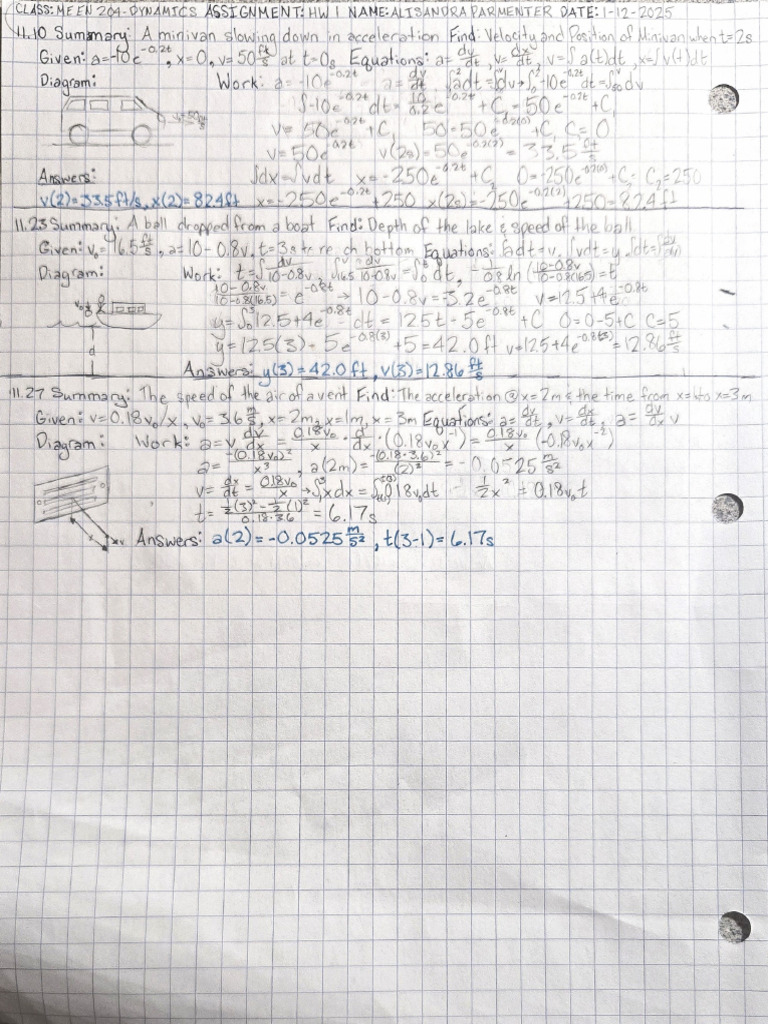 CLASS: ME EN 204-DYNAMICS ASSIGNMENT: HW 1 NAME: ALISANDRA PARMENTER DATE: 1-12-2025
11.10 Summary: A minivan slowing down in acceleration Find: Velocity and Position of Minivan when t=2s
Given: a=-10e^-0.2t, x=0, v=50 ft/s at t=0s Equations: a=dv/dt, v=dx/dt, v=∫a(t)dt, x=∫v(t)dt
Diagram: Work: a=-10e^-0.2t a=dv/dt ∫adt=∫dv→∫-10e^-0.2t dt=∫50 dv
∫-10e^-0.2t dt=10/0.2 e^-0.2t+C₁=50e^-0.2t+C₁
v=50e^-0.2t+C₁ 50=50e^-0.2(0)+C₁ C₁=0
v=50e^-0.2t v(2s)=50e^-0.2(2)=33.5 ft/s
Answers: ∫dx=∫vdt x=-250e^-0.2t+C₂ 0=-250e^-0.2(0)+C₂ C₂=250
v(2)=33.5ft/s, x(2)=82.4ft x=-250e^-0.2t+250 x(2s)=-250e^-0.2(2)+250=82.4ft
11.23 Summary: A ball dropped from a boat Find: Depth of the lake & speed of the ball
Given: v₀=16.5 ft/s, a=10-0.8v, t=3s to reach bottom Equations: ∫adt=v, ∫vdt=y
Diagram: Work: t=∫dv/10-0.8v, ∫16.5 dv/10-0.8v=∫0 dt, -1/0.8 ln(10-0.8v/10-0.8(16.5))=t
10-0.8v/10-0.8(16.5)=e^-0.8t→10-0.8v=-3.2e^-0.8t v=12.5+4e^-0.8t
y=∫0 12.5+4e^-0.8t dt=12.5t-5e^-0.8t+C 0=0-5+C C=5
y=12.5(3)-5e^-0.8(3)+5=42.0ft v=12.5+4e^-0.8(3)=12.86 ft/s
d
Answers: y(3)=42.0ft, v(3)=12.86 ft/s
11.27 Summary: The speed of the air of a vent Find: The acceleration @ x=2m & the time from x=1 to x=3m
Given: v=0.18v₀/x, v₀=3.6 m/s, x=2m, x=1m, x=3m Equations: a=dv/dt, v=dx/dt, a=dv/dx v
Diagram: Work: a=v dv/dx=0.18v₀/x·d/dx·(0.18v₀x^-1)=0.18v₀/x(-0.18v₀x^-2)
a=-(0.18v₀)²/x³, a(2m)=-(0.18·3.6)²/(2)³=-0.0525 m/s²
v=dx/dt=0.18v₀/x→∫xdx=∫0.18v₀dt ½x²=0.18v₀t
t=½(3)²-½(1)²/0.18·3.6=6.17s
Answers: a(2)=-0.0525 m/s², t(3-1)=6.17s